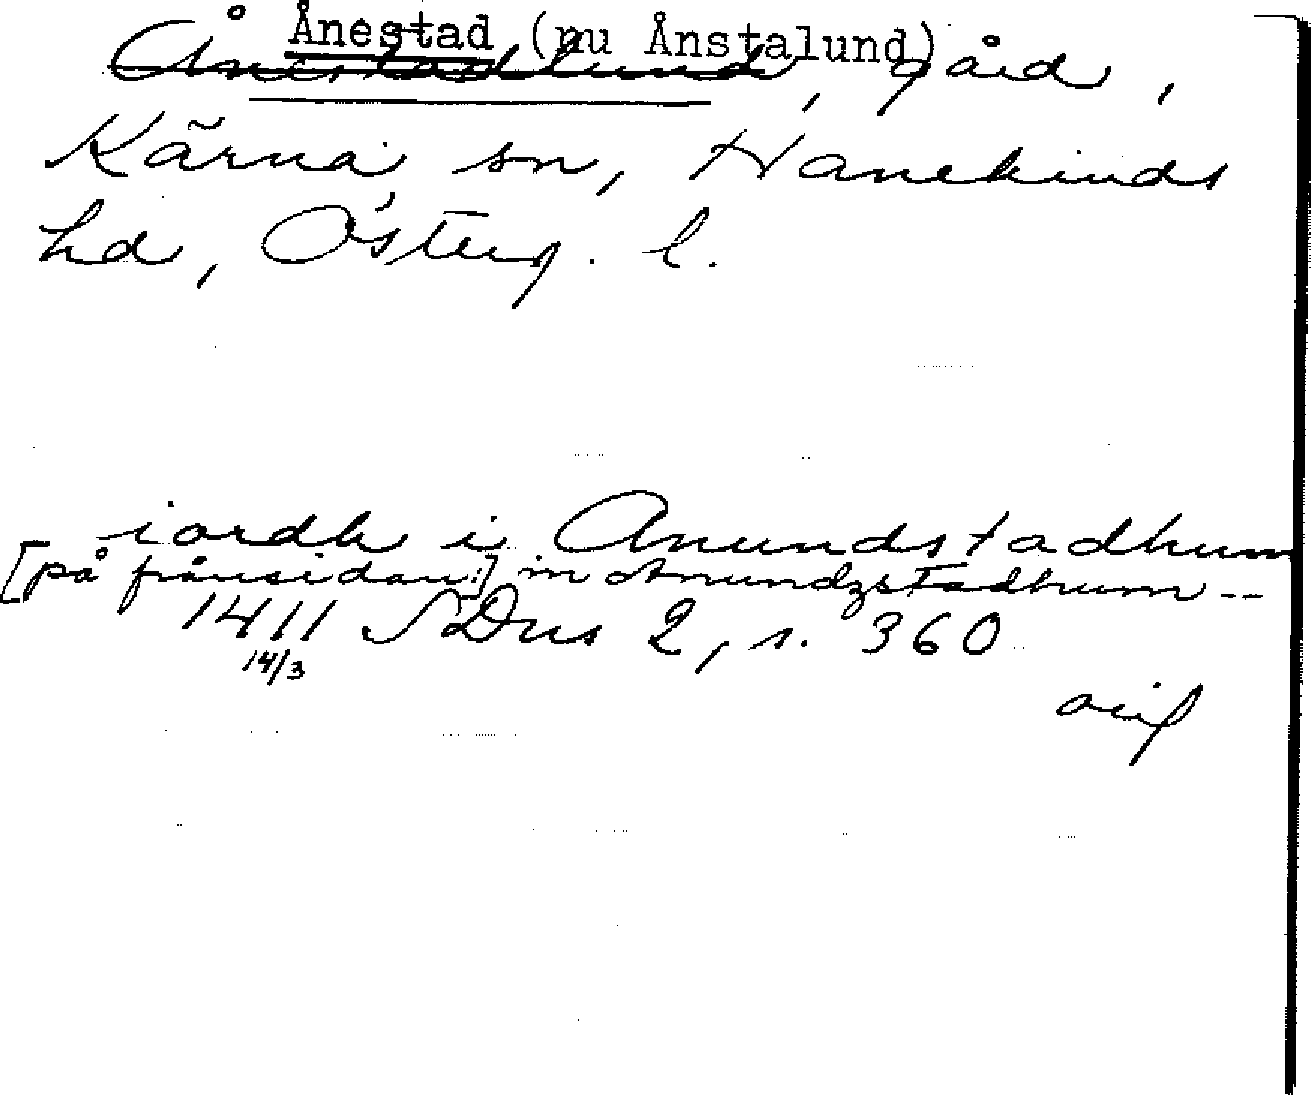 Ånestad (nu Ånstalund)
Ånestadlund, gård,
Kärna sn, Hanekinds
hd, Österg. l.
iordh i Anundstadhum
[på frånsidan:] in Anundzstadhum --
1411 SDns 2, s. 360
14/3
orig